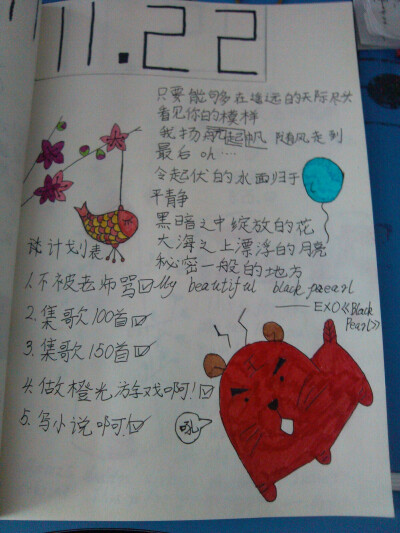 11.22
只要能够在遥远的天际尽头
看见你的模样
我扬起帆 随风走到
最后 oh……
令起伏的水面归于
平青静
黑暗之中绽放的花
大海之上漂浮的月亮
秘密一般的地方
My beautiful black prearl
—— EXO《Black Pearl》
计划表
1. 不被老师骂☑
2. 集歌100首☑
3. 集歌150首☑
4. 做橙光游戏啊!☑
5. 写小说啊!☑
吼